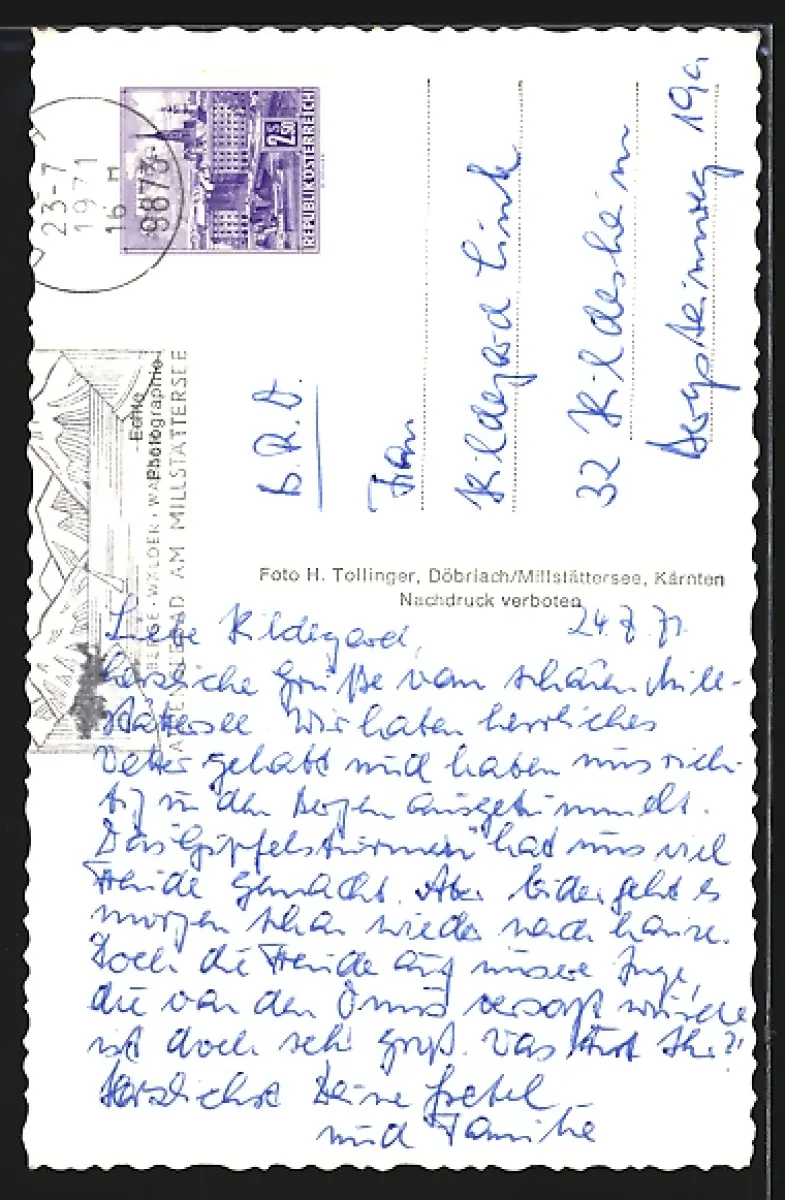 23-7
1971
16 H
9873
REPUBLIK ÖSTERREICH
S 2.50
Echte
Photographie
BERGE·WÄLDER
AM MILLSTÄTTERSEE
B.R.D.
Frau
Hildegard Link
32 Hildesheim
19a
Foto H. Tollinger, Döbriach/Millstättersee, Kärnten
Nachdruck verboten
24.7.71.
Liebe Hildegard,
herzliche Grüße vom schönen Mill-
stättersee. Wir haben herrliches
Wetter gehabt und haben uns rich-
tig in den Bergen ausgetummelt.
Das "Gipfelstürmen" hat uns viel
Freude gemacht. Aber leider geht es
morgen schon wieder nach hause.
Doch die Freude auf unsere Inge,
die von den Omis versorgt wurde
ist doch sehr groß. Was tut Ihr?
Herzlichst Deine Gretel
und Familie